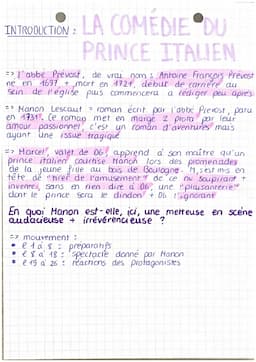 INTRODUCTION : LA COMÉDIE DU
PRINCE ITALIEN
=> l'abbé Prévost, de vrai nom : Antoine François Prévost
né en 1697 + mort en 1721, début de carrière au
sein de l'église puis commencera à rédiger peu après
=> Manon Lescaut : roman écrit par l'abbé Prévost, paru
en 1731. Ce roman met en marge 2 prota par leur
amour passionnel, c'est un roman d'aventures mais
ayant une issue tragique
=> Marcel, valet de DG, apprend à son maître qu'un
prince italien courtise Manon lors des promenades
de la jeune fille au bois de Boulogne. M, s'est mis en
tête de "tirer de l'amusement" de ce nv soupirant +
inventer, sans en rien dire à DG, une "plaisanterie"
dont le prince sera le dindon + DG l'ignorant
En quoi Manon est-elle, ici, une metteuse en scène
audacieuse + irrévérencieuse ?
=> mouvement :
• l 1 à 8 : préparatifs
• l 8 à 18 : spectacle donné par Manon
• l 19 à 26 : réactions des protagonistes